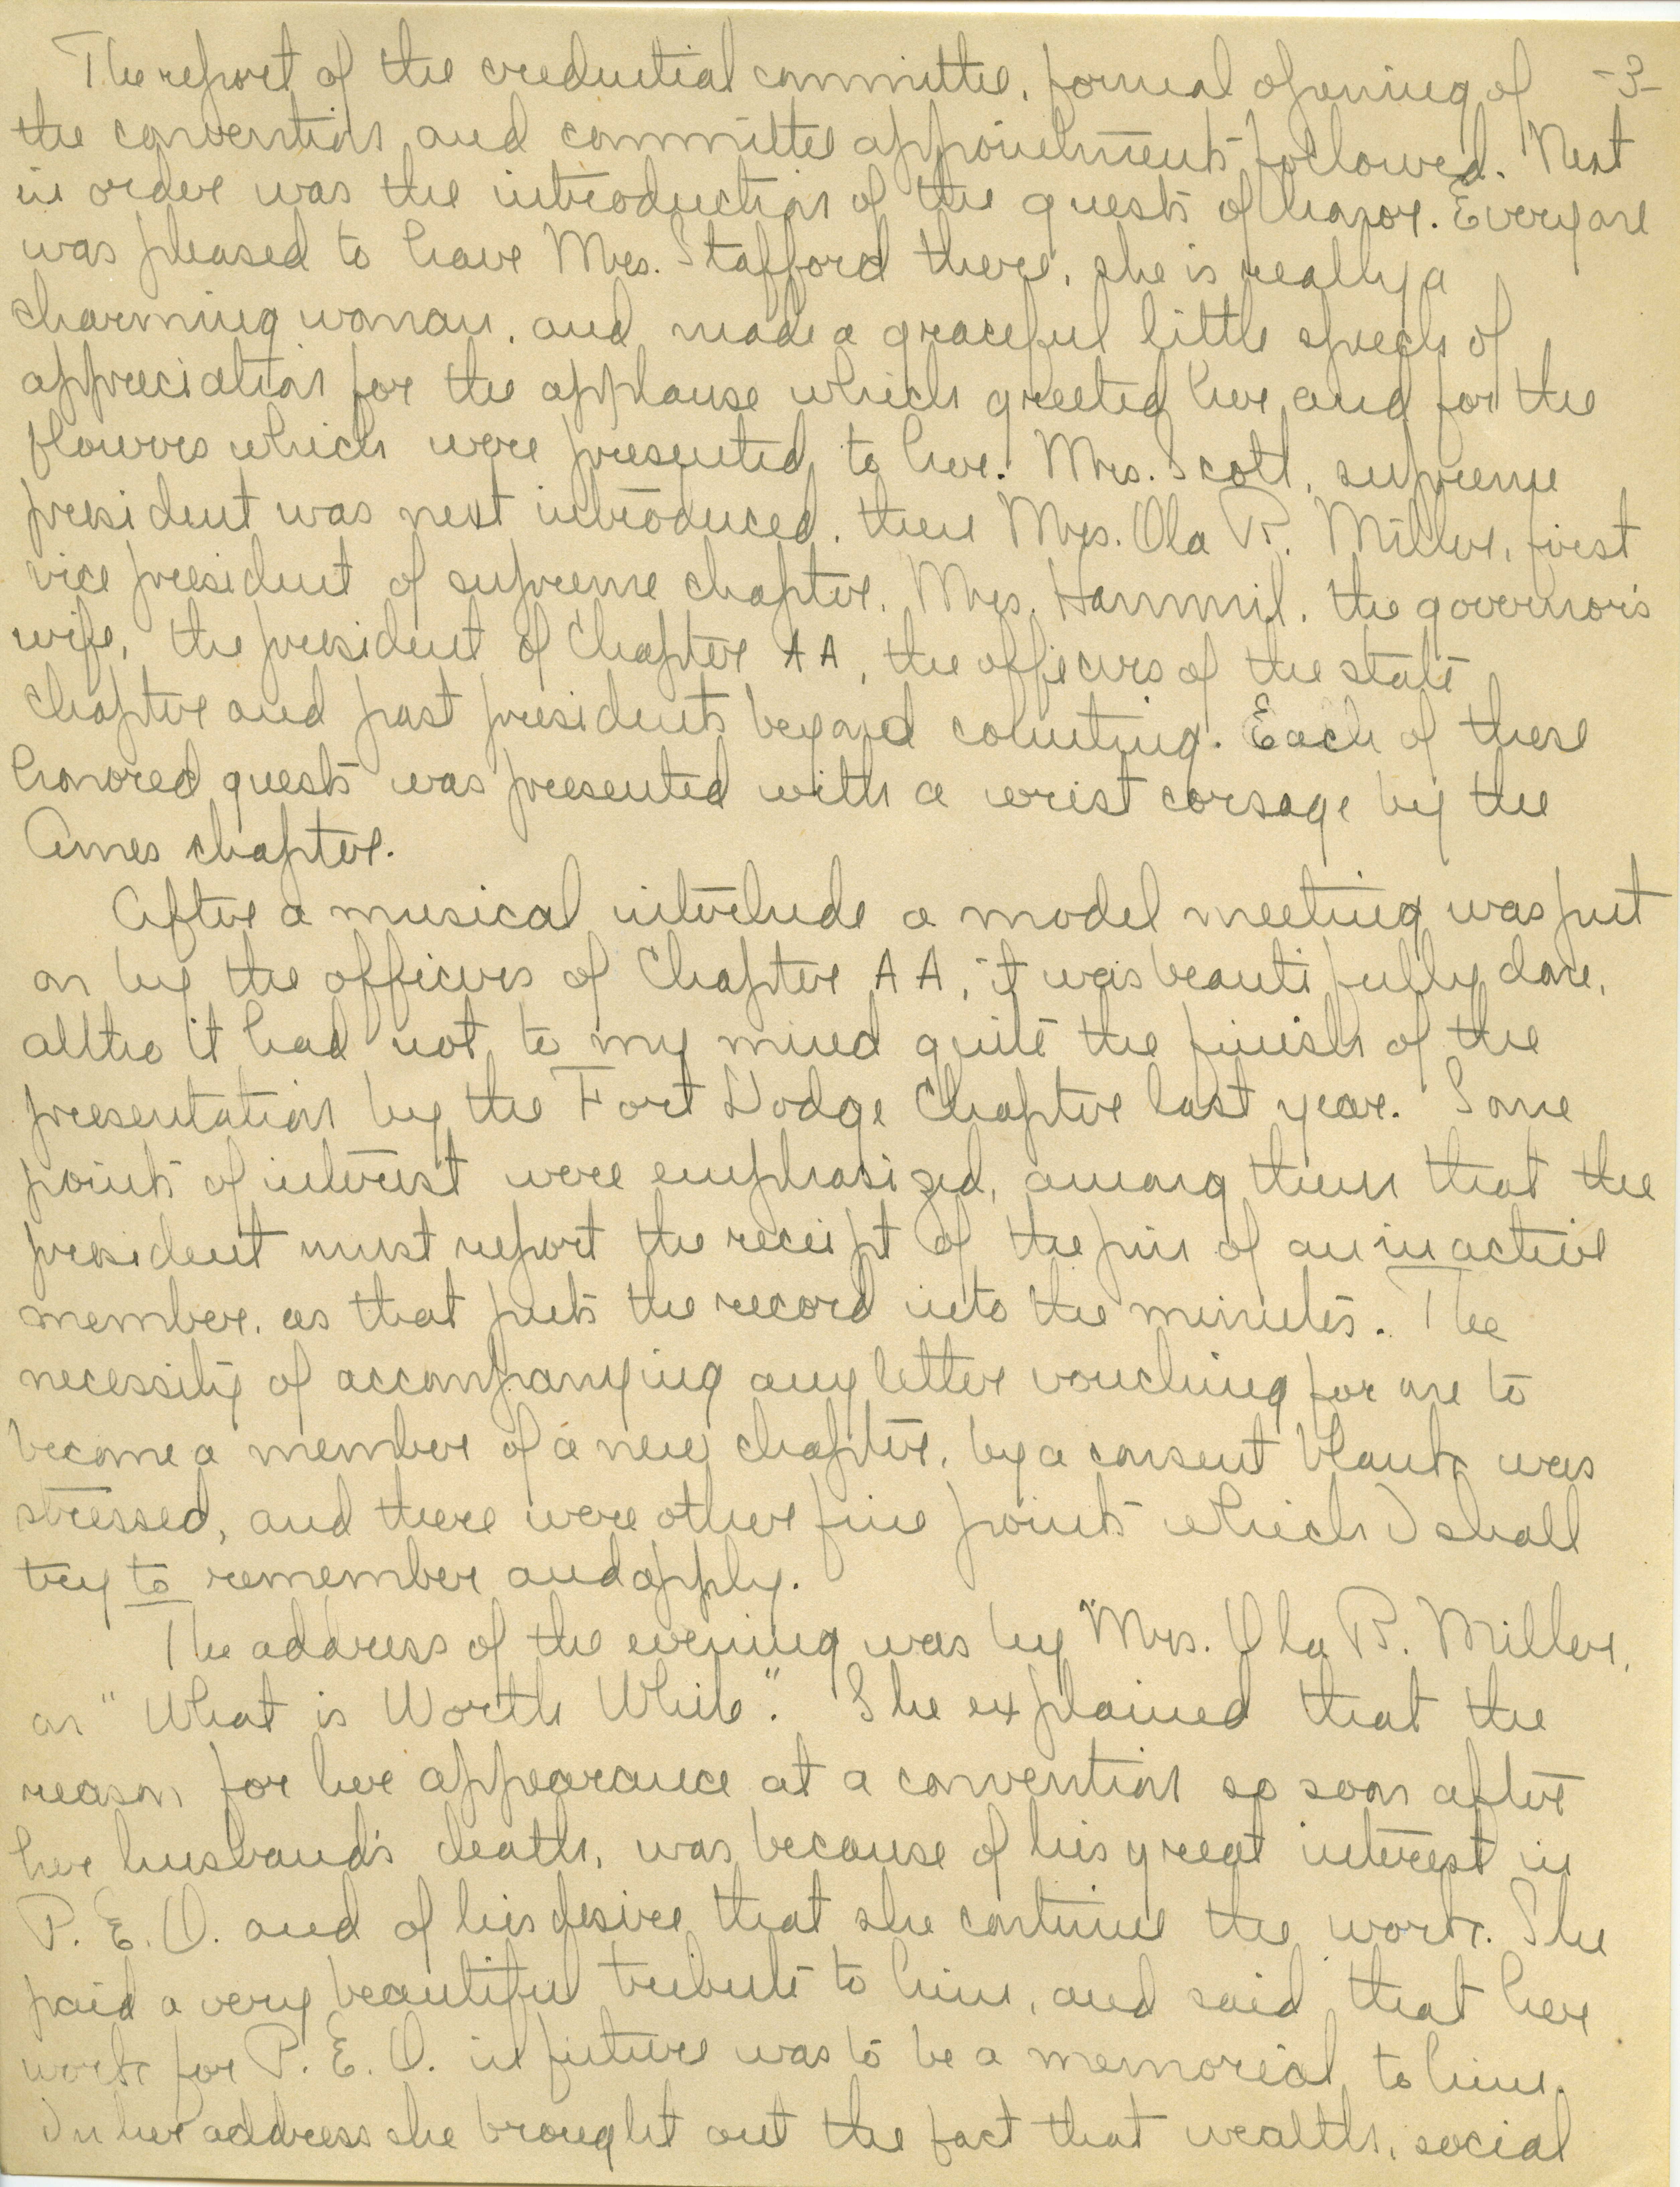 The report of the credential committee, formal opening of -3-
the convention and committee appointments followed. Next
in order was the introduction of the guests of honor. Everyone
was pleased to have Mrs. Stafford there, she is really a
charming woman, and made a graceful little speech of
appreciation for the applause which greeted her, and for the
flowers which were presented to her. Mrs. Scott, supreme
president was next introduced, then Mrs. Ola B. Miller, first
vice president of supreme chapter, Mrs. Hammil, the governor's
wife, the president of Chapter AA, the officers of the state
chapter and past presidents beyond counting. Each of these
honored guests was presented with a wrist corsage by the
Ames chapter.
After a musical interlude a model meeting was put
on by the officers of Chapter AA, it was beautifully done,
altho it had not to my mind quite the finish of the
presentation by the Fort Dodge Chapter last year. Some
points of interest were emphasized, among them that the
president must report the receipt of the pin of an inactive
member, as that puts the record into the minutes. The
necessity of accompanying any letter vouching for one to
become a member of a new chapter, by a consent blank was
stressed, and there were other fine points which I shall
try to remember and apply.
The address of the evening was by Mrs. Ola B. Miller,
on "What is Worth While". She explained that the
reason for her appearance at a convention so soon after
her husband's death, was because of his great interest in
P. E. O. and of his desire that she continue the work. She
paid a very beautiful tribute to him, and said that her
work for P. E. O. in future was to be a memorial to him.
In her address she brought out the fact that wealth, social